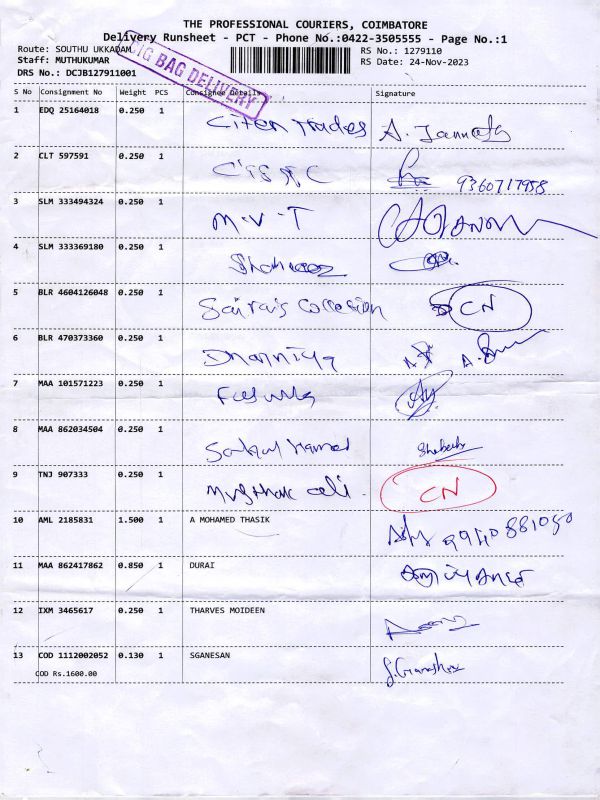 THE PROFESSIONAL COURIERS, COIMBATORE
Delivery Runsheet - PCT - Phone No.:0422-3505555 - Page No.:1
Route: SOUTHU UKKADAM RS No.: 1279110
Staff: MUTHUKUMAR RS Date: 24-Nov-2023
DRS No.: DCJB127911001
BIG BAG DELIVERY
S No Consignment No Weight PCS Consignee Details Signature
1 EDQ 25164018 0.250 1 Citen Trades
2 CLT 597591 0.250 1 9360717958
3 SLM 333494324 0.250 1 M.V.T
4 SLM 333369180 0.250 1
5 BLR 4604126048 0.250 1 CN
6 BLR 470373360 0.250 1 Dhanniya
7 MAA 101571223 0.250 1
8 MAA 862034504 0.250 1 Hamed
9 TNJ 907333 0.250 1 Musthak ali. CN
10 AML 2185831 1.500 1 A MOHAMED THASIK
11 MAA 862417862 0.850 1 DURAI
12 IXM 3465617 0.250 1 THARVES MOIDEEN
13 COD 1112002052 0.130 1 SGANESAN
COD Rs.1600.00